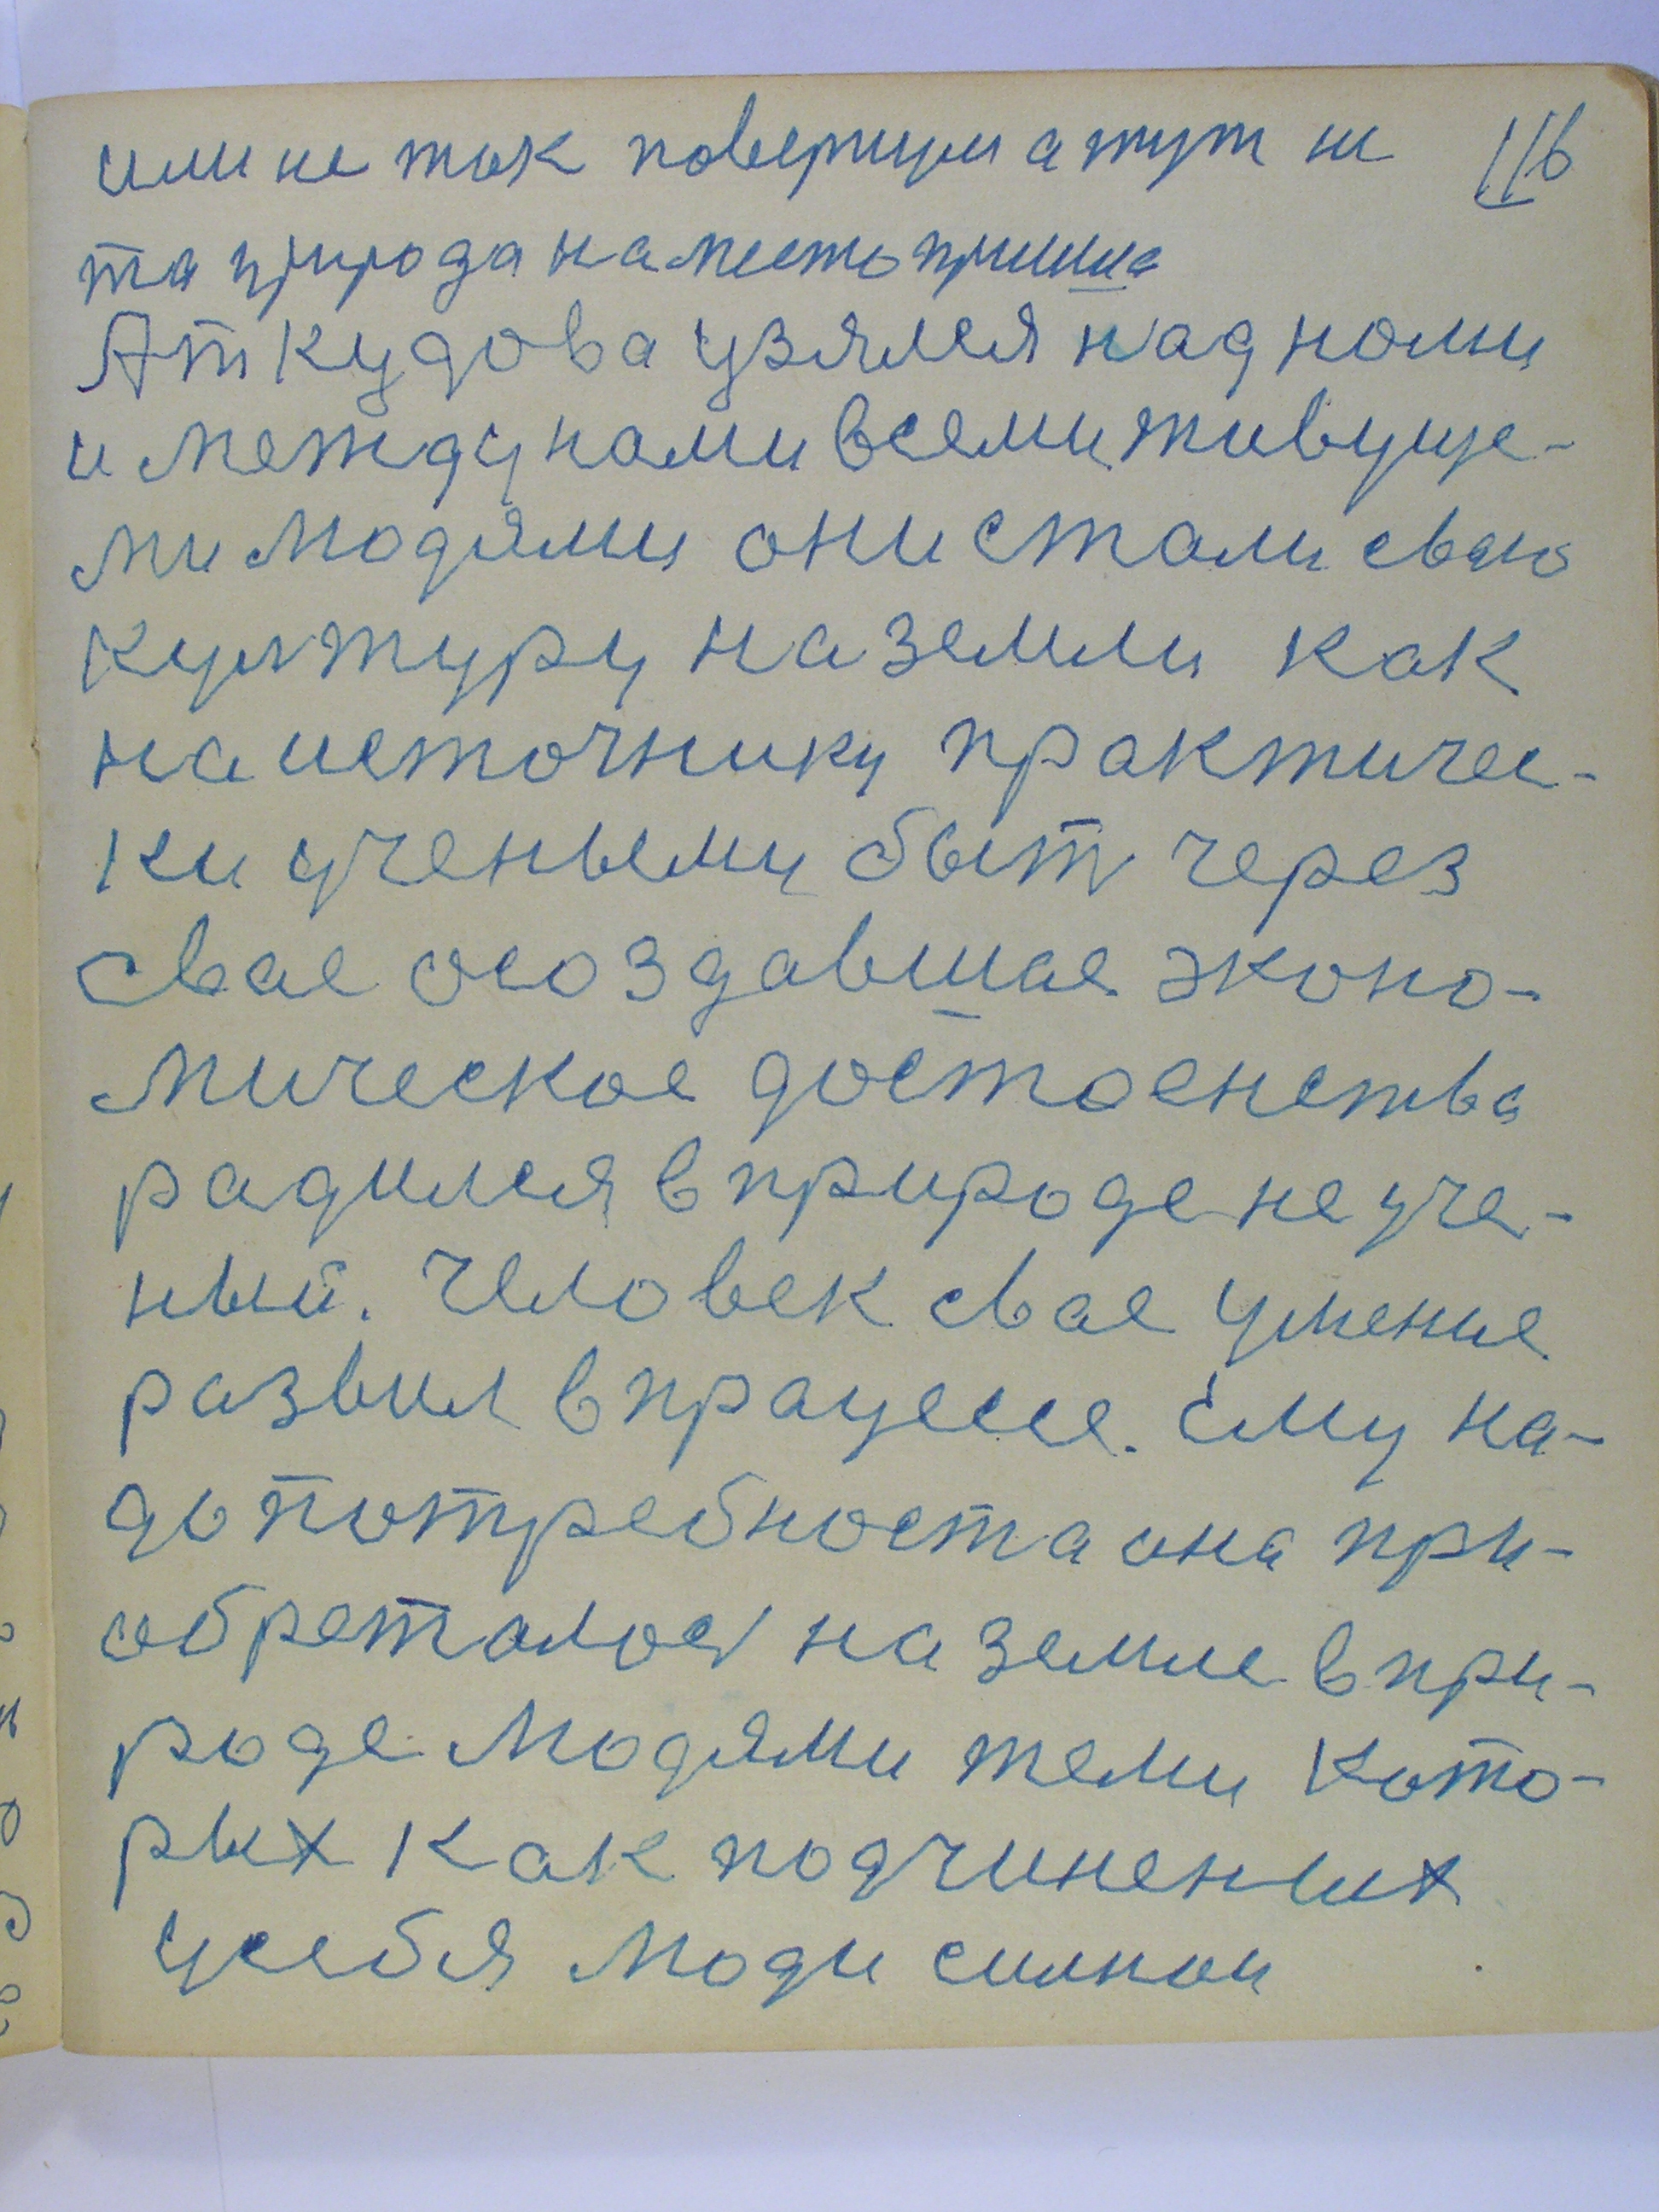 или не так повернули а тут не 116
та природа на место пришла
Аткудова узялся над нами
и между нами всеми живуще-
ми людями они стали сваю
културу на земли как
на источнику практичес-
ки ученыему быт через
свае осоздавшае эконо-
мическое достоенства
радился в природе не уче-
ный. Человек свае умение
развил в працессе. Ему на-
до потребноста она при-
обреталося на земле в при-
роде людями теми кото-
рых как подчиненых
у себя люди силнои